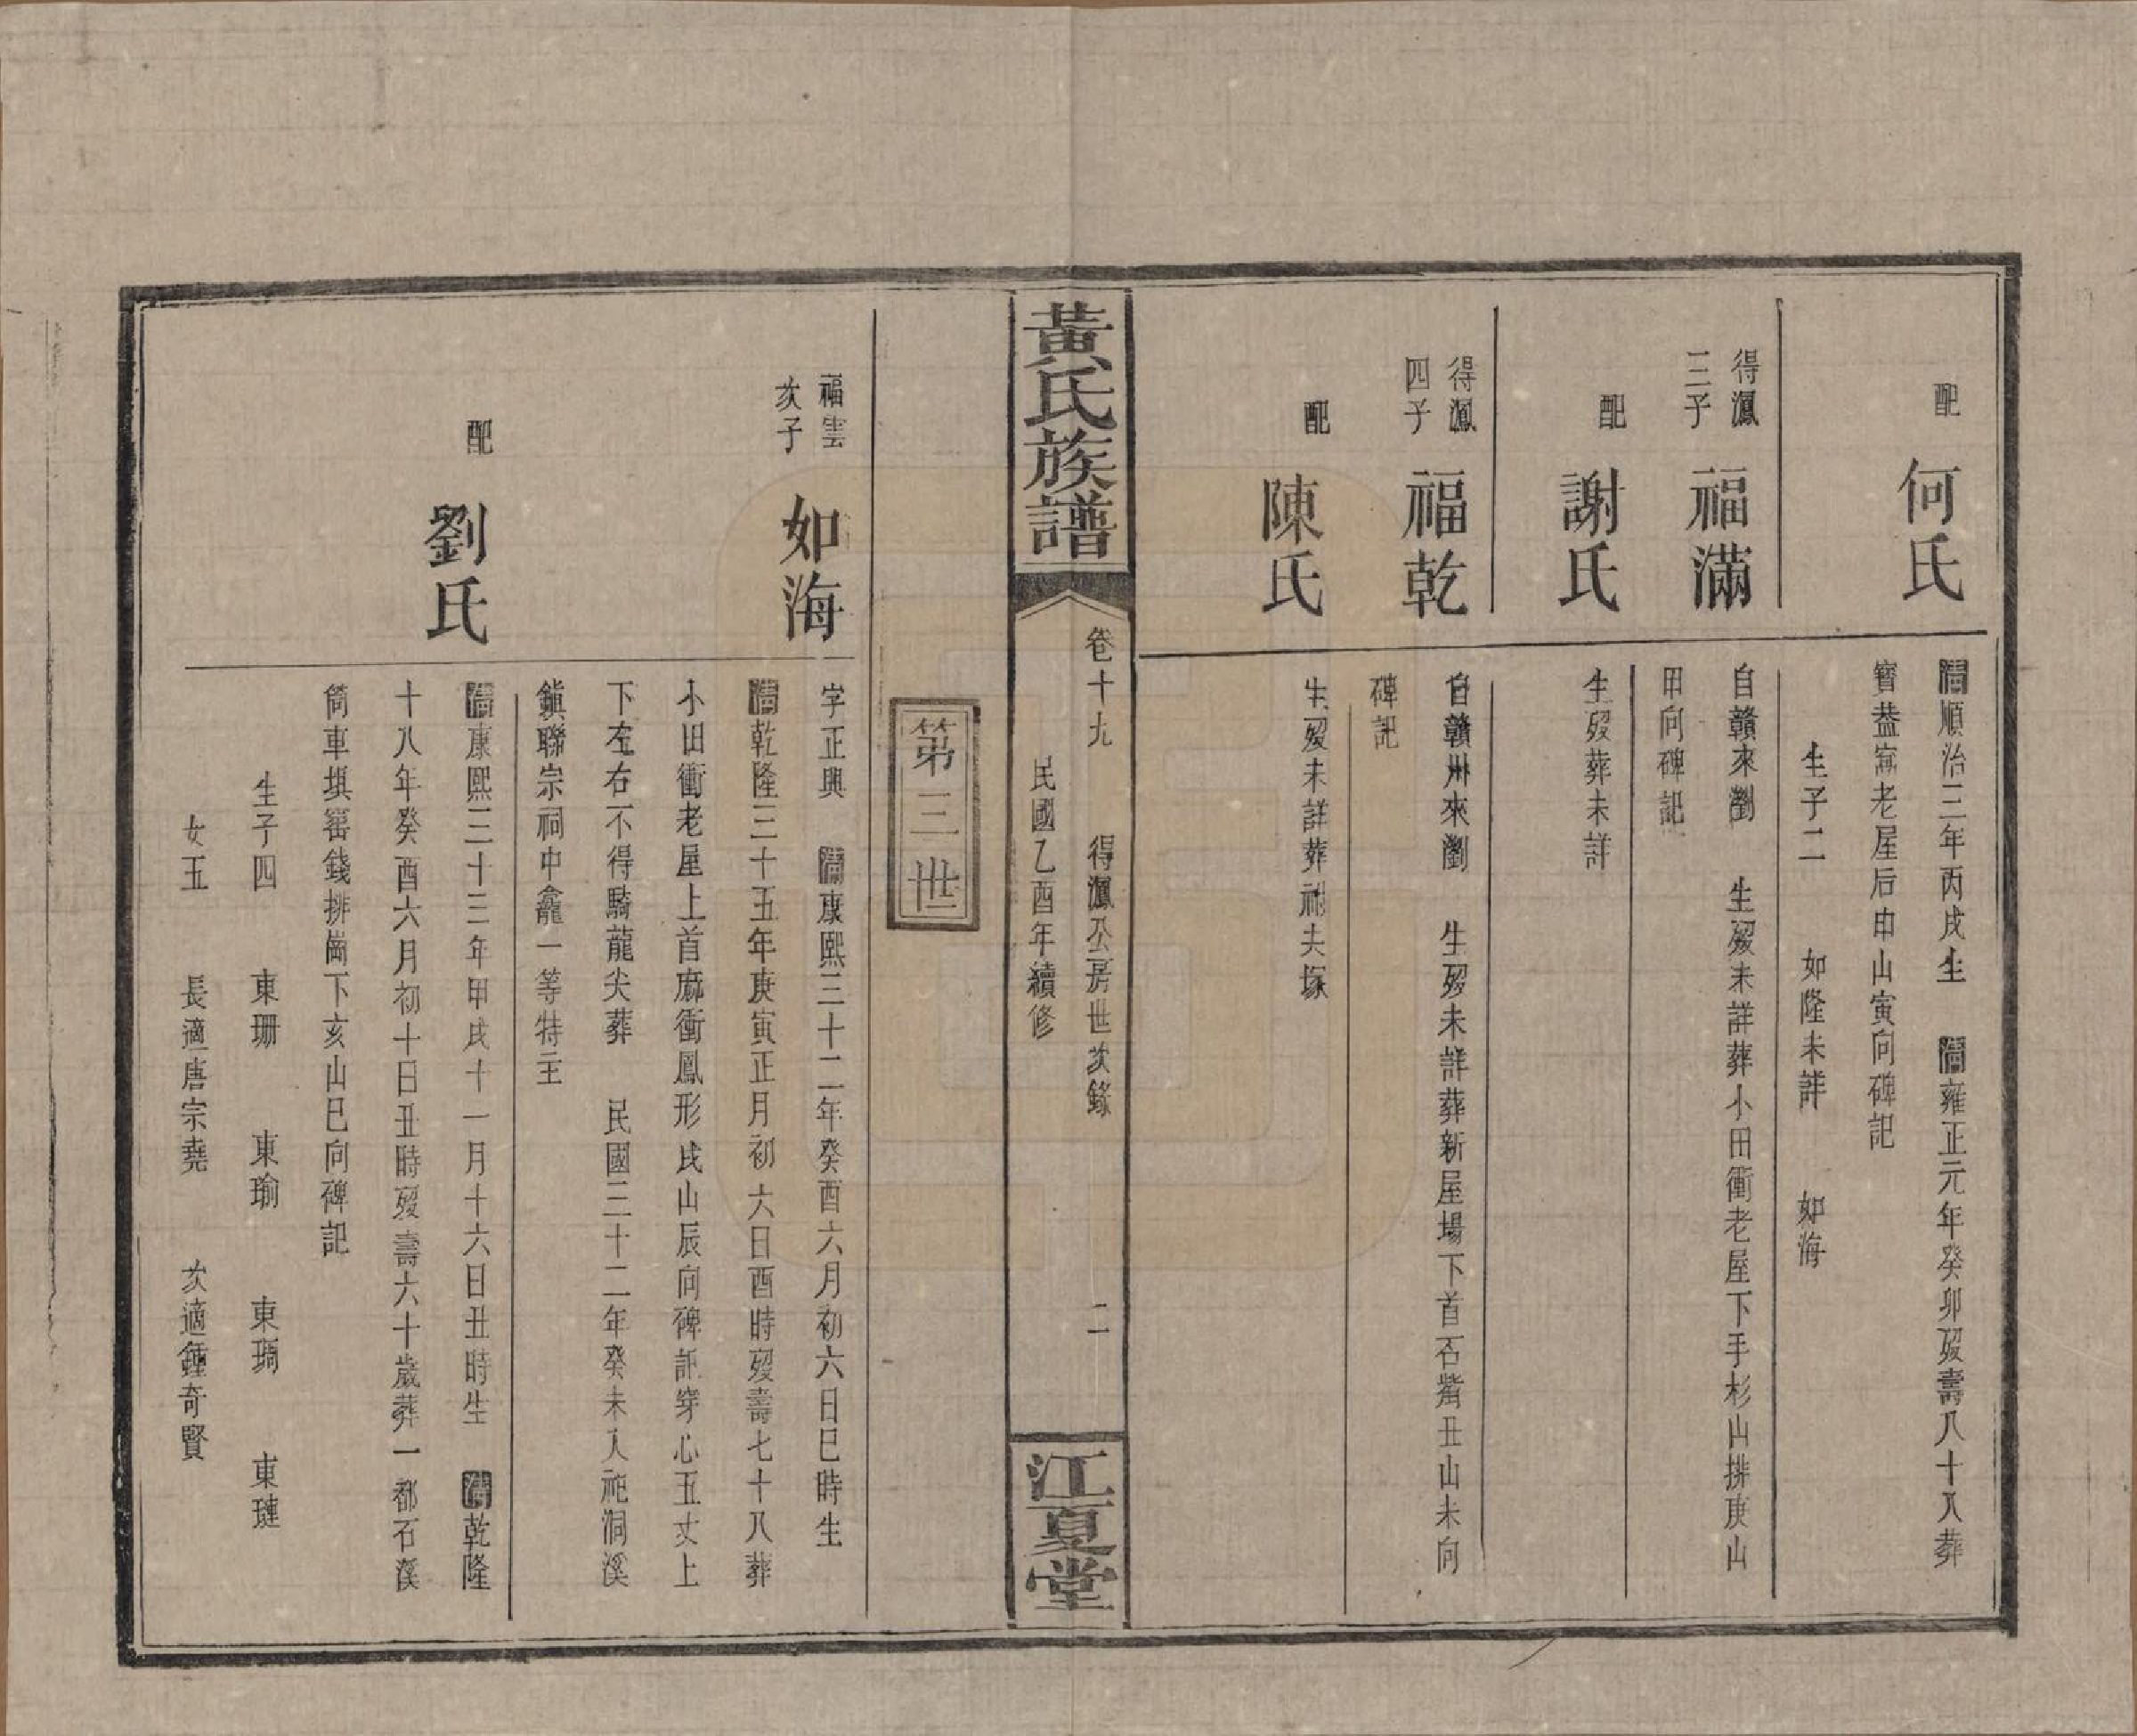 配　何氏
清順治三年丙戌生　清雍正元年癸卯歿壽八十八葬
寶葢窩老屋后申山寅向碑記
生子二　如隆未詳　如海
得鳳三子　福滿
自贛來瀏　生歿未詳葬小田衝老屋下手杉山排庚山
甲向碑記
配　謝氏
生歿葬未詳
得鳳四子　福乾
自贛州來瀏　生歿未詳葬新屋場下首石嘴丑山未向
碑記
配　陳氏
生歿未詳葬祔夫塚
黃氏族譜
卷十九　得鳳公房世次錄　二
民國乙酉年續修
江夏堂
第三世
福雲次子　如海
字正興　清康熙三十二年癸酉六月初六日巳時生
清乾隆三十五年庚寅正月初六日酉時歿壽七十八葬
小田衝老屋上首蔴衝鳳形戌山辰向碑記穿心五丈上
下左右不得騎龍尖葬　民國三十二年癸未入祀澗溪
鎮聯宗祠中龕一等特主
配　劉氏
清康熙三十三年甲戌十一月十六日丑時生　清乾隆
十八年癸酉六月初十日丑時歿壽六十歲葬一都石溪
筒車埧窰錢排崗下亥山巳向碑記
生子四　東珊　東瑜　東琱　東璉
女五　長適唐宗堯　次適鍾奇賢